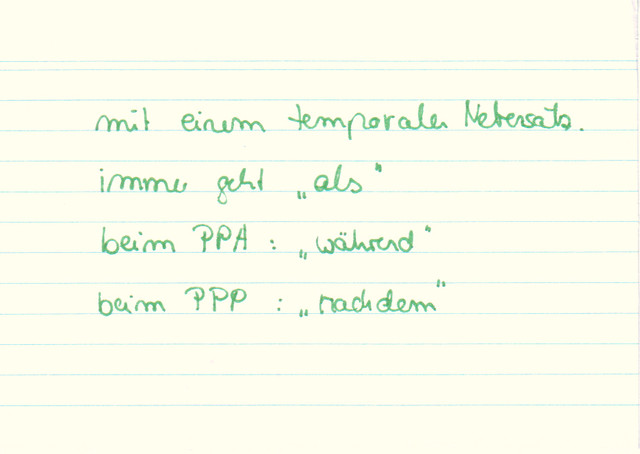 mit einem temporalen Nebensatz.
immer geht „als“
beim PPA : „während“
beim PPP : „nachdem“